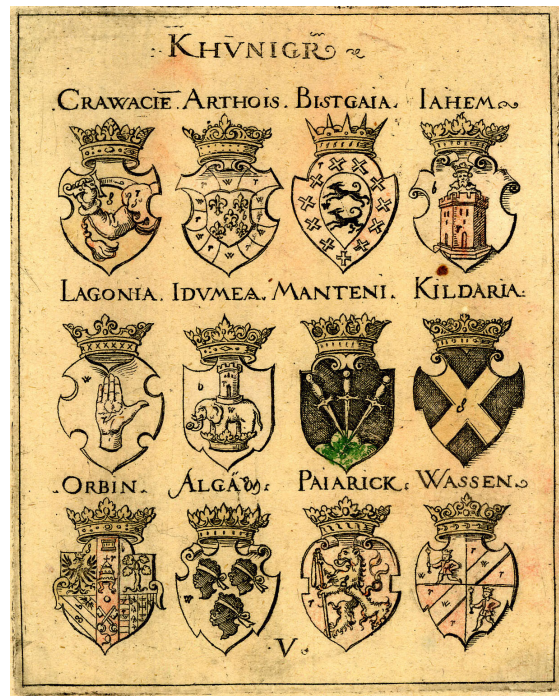 KHVNIGR̃
CRAWACIĒ. ARTHOIS. BISTGAIA. IAHEM
LAGONIA. IDVMEA. MANTENI. KILDARIA:
ORBIN. ALGAƲ: PAIARICK: WASSEN
V.